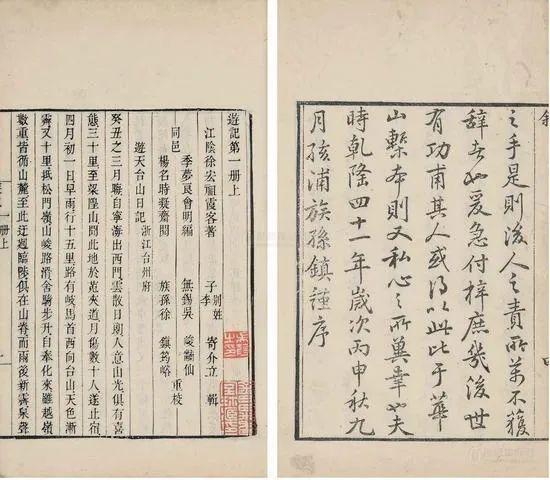 之手是則後人之責所萬不獲
辭者也爰急付梓庶幾後世
有功甫其人或得以此比于華
山槧本則又私心之所冀幸也夫
時乾隆四十一年歲次丙申秋九
月孩浦族孫鎮謹序
遊記第一册上
江陰徐宏祖霞客著 子李 別姓 寄介立輯
季夢良會明編 無錫吳峻黼仙
同邑 重校
楊名時凝齋閱 族孫徐鎮筠峪
遊天台山日記 浙江台州府
癸丑之三月晦自寧海出西門雲散日朗人意山光俱有喜
態三十里至梁隍山聞此地於菟夾道月傷數十人遂止宿
四月初一日早雨行十五里路有岐馬首西向台山天色漸
霽又十里抵松門嶺山峻路滑舍騎步自奉化來雖越嶺
數重皆循山麓至此迂迴臨陟俱在山脊而雨後新霽泉聲